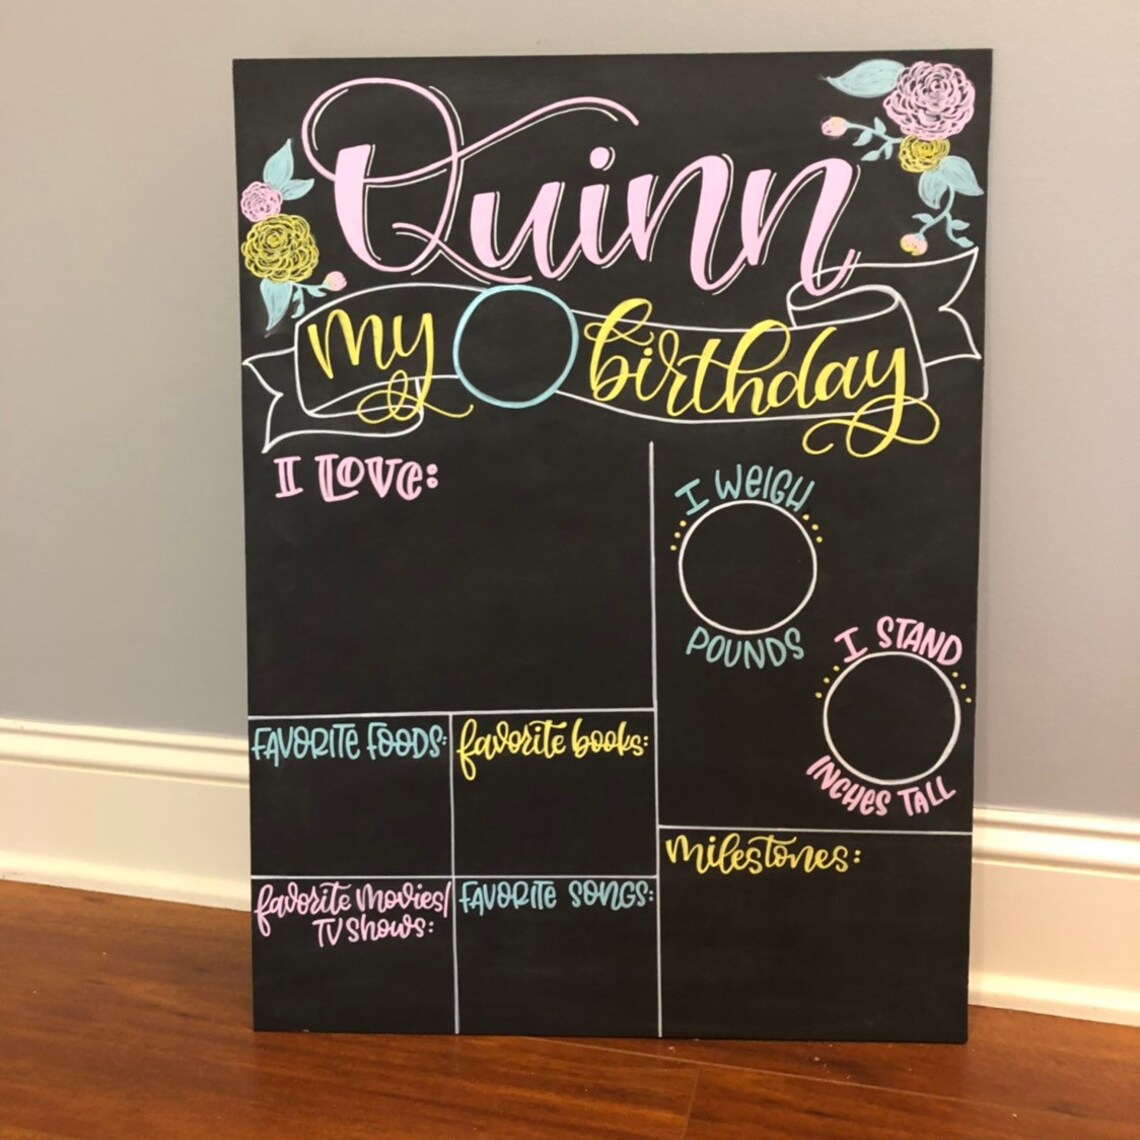 Quinn
my birthday
I LOVE:
I WEIGH
POUNDS
I STAND
INCHES TALL
FAVORITE FOODS:
favorite books:
favorite movies/
TV shows:
FAVORITE SONGS:
milestones: